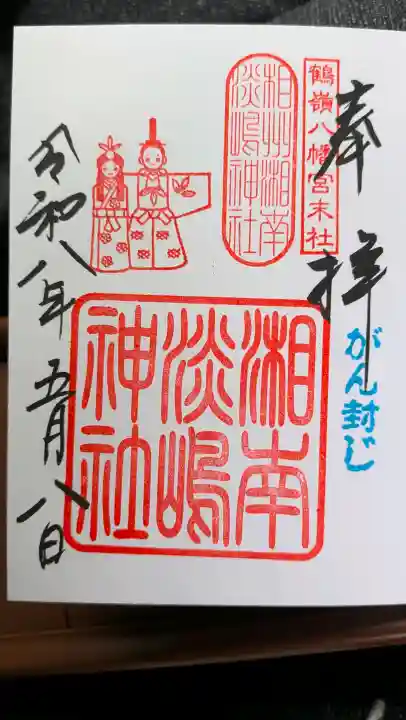 奉拝
鶴嶺八幡宮末社
相州湘南
淡嶋神社
がん封じ
湘南
淡嶋
神社
令和八年五月八日